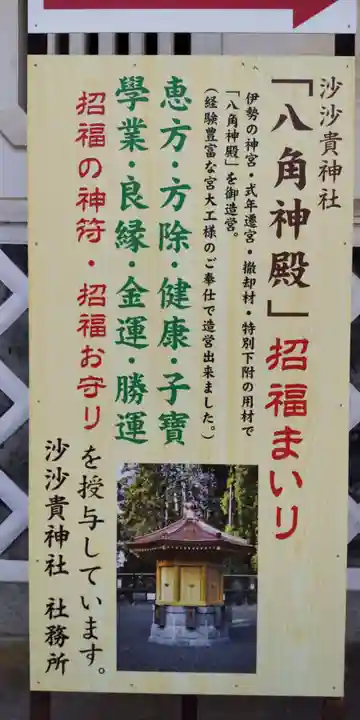 沙沙貴神社
「八角神殿」招福まいり
伊勢の神宮・式年遷宮・撤却材・特別下附の用材で
「八角神殿」を御造営。
(経験豊富な宮大工様のご奉仕で造営出来ました。)
恵方・方除・健康・子寶
學業・良縁・金運・勝運
招福の神符・招福お守り
を授与しています。
沙沙貴神社 社務所